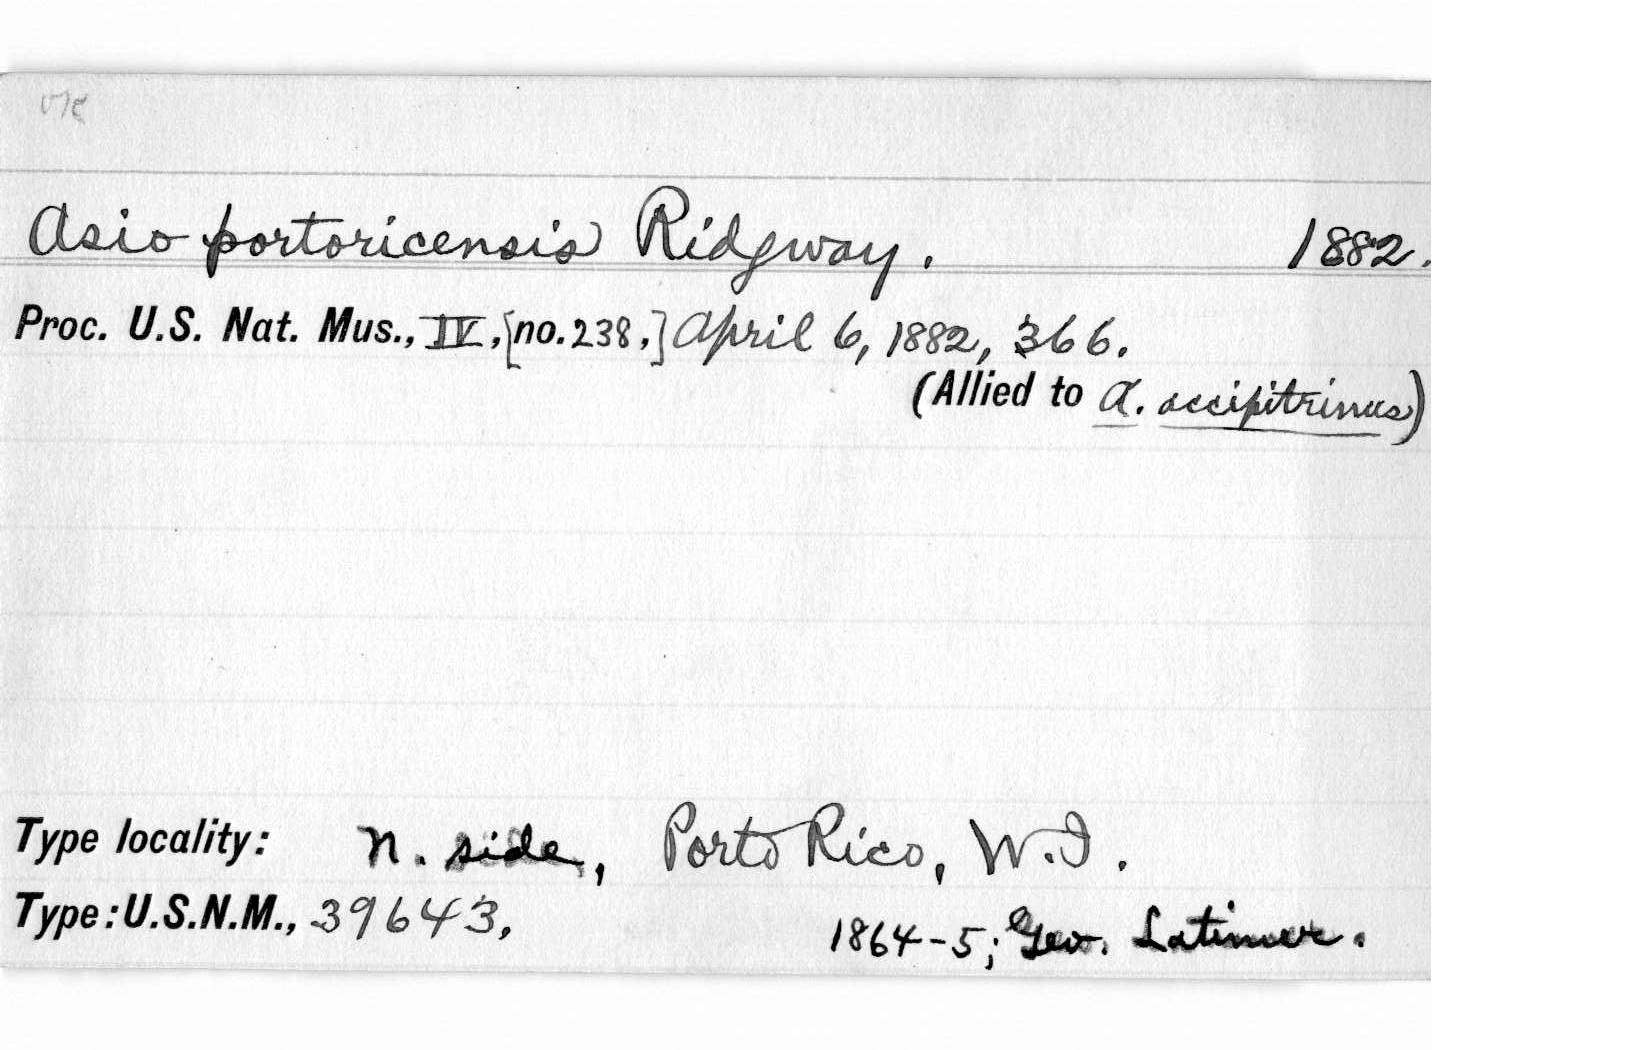 Asio portoricensis Ridgway. 1882.
Proc. U.S. Nat. Mus., IV, [no. 238,] April 6, 1882, 366.
(Allied to A. accipitrinus)
Type locality: N. side, Porto Rico, W.I.
Type: U.S.N.M., 39643, 1864-5; Geo. Latimer.